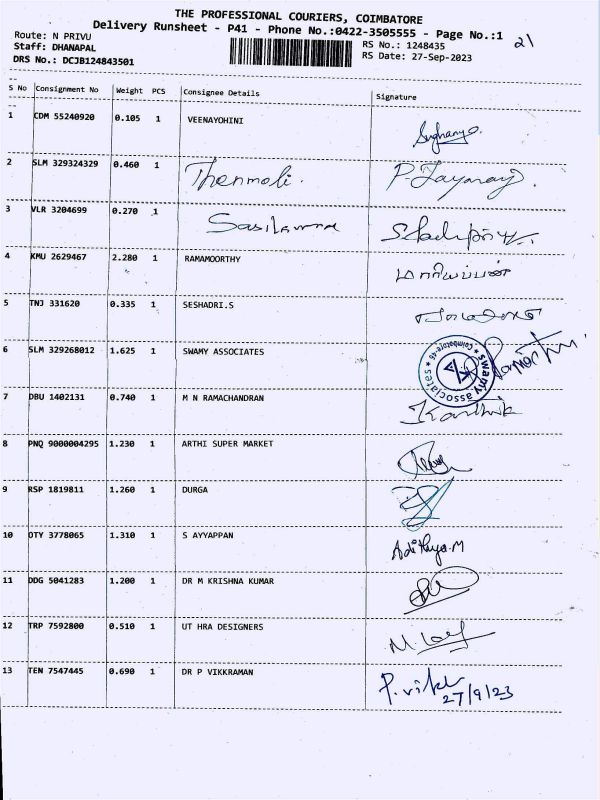 THE PROFESSIONAL COURIERS, COIMBATORE
Delivery Runsheet - P41 - Phone No.:0422-3505555 - Page No.:1
21
Route: N PRIVU
RS No.: 1248435
Staff: DHANAPAL
RS Date: 27-Sep-2023
DRS No.: DCJB124843501
S No Consignment No Weight PCS Consignee Details Signature
1 CDM 55240920 0.105 1 VEENAYOHINI
2 SLM 329324329 0.460 1 Thenmoli. P. Jayaraj.
3 VLR 3204699 0.270 1
4 KMU 2629467 2.280 1 RAMAMOORTHY மாரியப்பன்
5 TNJ 331620 0.335 1 SESHADRI.S
6 SLM 329268012 1.625 1 SWAMY ASSOCIATES swamy associates * Coimbatore-45 *
7 DBU 1402131 0.740 1 M N RAMACHANDRAN Karthik
8 PNQ 9000004295 1.230 1 ARTHI SUPER MARKET
9 RSP 1819811 1.260 1 DURGA
10 OTY 3778065 1.310 1 S AYYAPPAN Adithya.M
11 DDG 5041283 1.200 1 DR M KRISHNA KUMAR
12 TRP 7592800 0.510 1 UT HRA DESIGNERS
13 TEN 7547445 0.690 1 DR P VIKKRAMAN
27/9/23